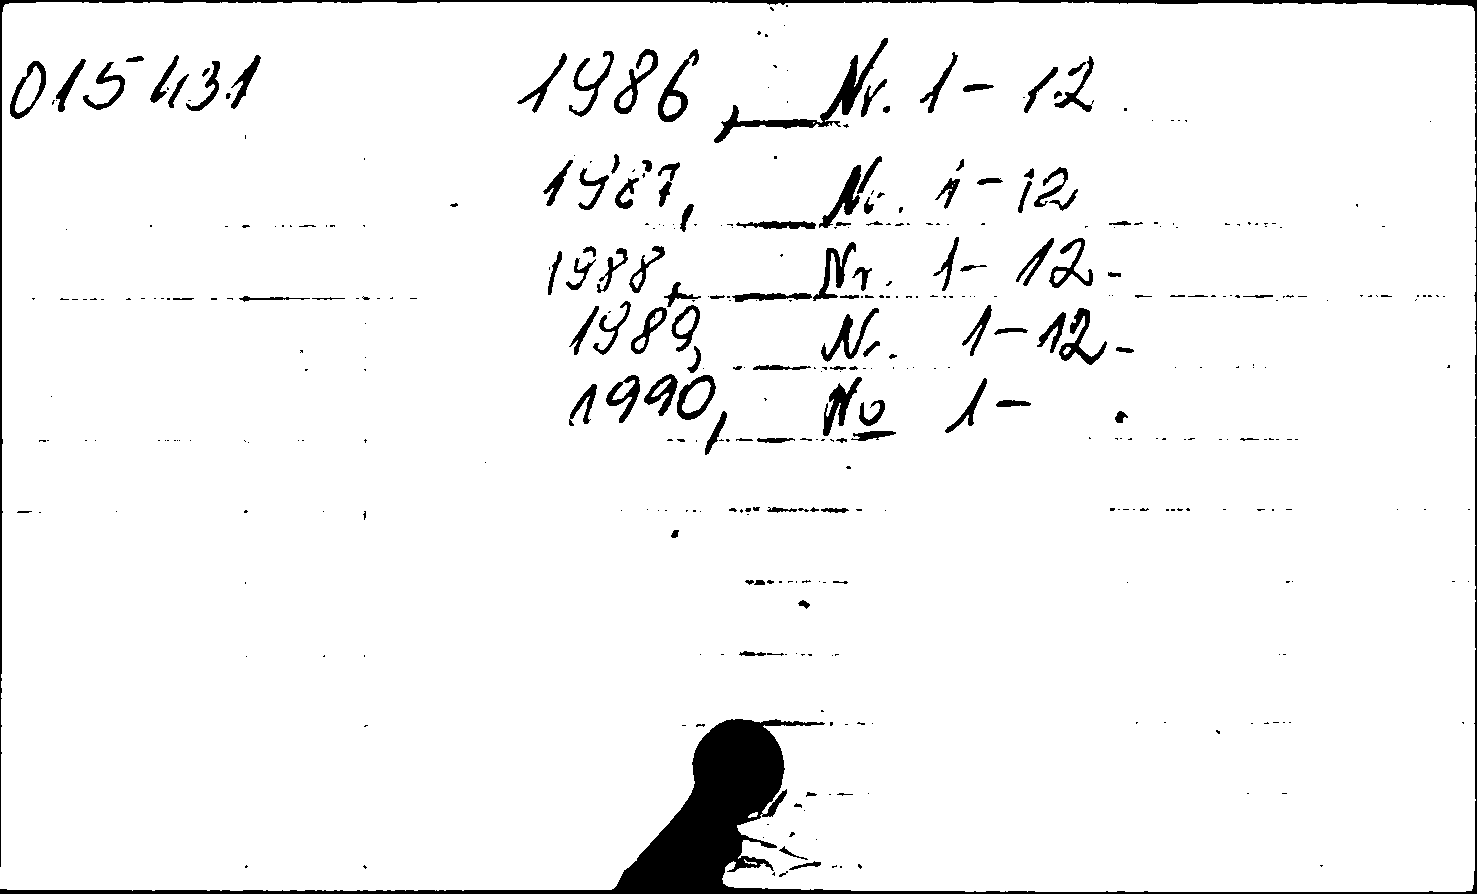 015431 1986, Nr. 1-12
1987, Nr. 1-12
1988, Nr. 1-12-
1989, Nr. 1-12-
1990, No 1-